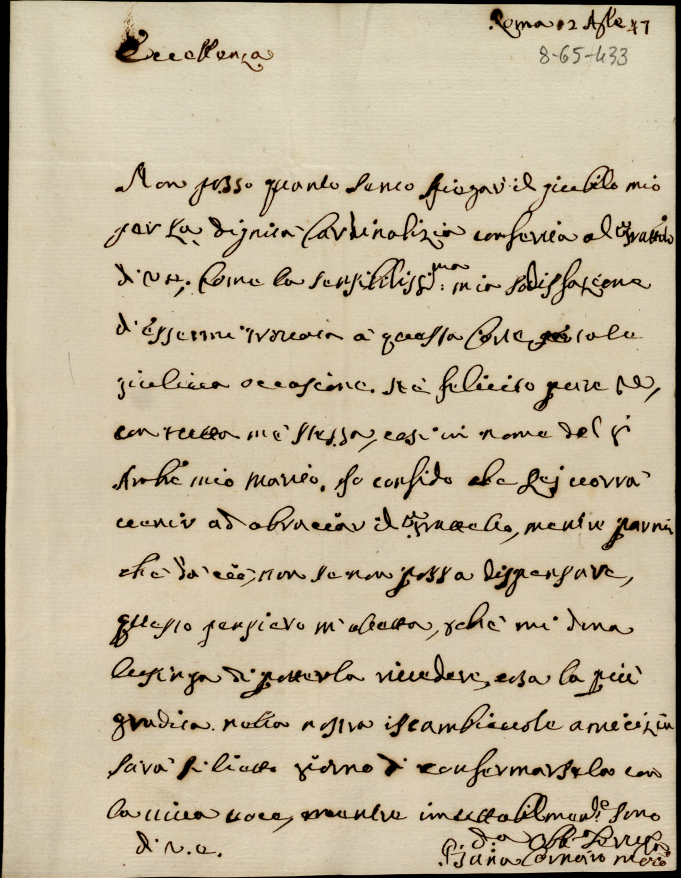 Roma 12 Aple 47
8-65-433
Eccellenza
Non posso quanto sento spiegar il giubilo mio
per La dignità Cardinalizia conferita al Sr fratello
di V.E., Come la sensibilissma: mia sodisfazione
d'essermi trovata à questa Corte in tale
giuliva occasione. Me felicito pure
con tutta me stessa, così in nome del Sr
Ambr mio Marito. Io confido che Lej vorrà
venir ad abracciar il Sr fratello, mentre parmi
che da ciò, non se non possa dispensare,
questo pensiero m'aletta, perchè mi dona
lusinga di potterla rivedere, cosa la più
gradita. nella nostra iscambievole amicizia
sarà felicitto giorno di confermarsela con
la viva voce, mentre imutabilmente: sono
di V.E.